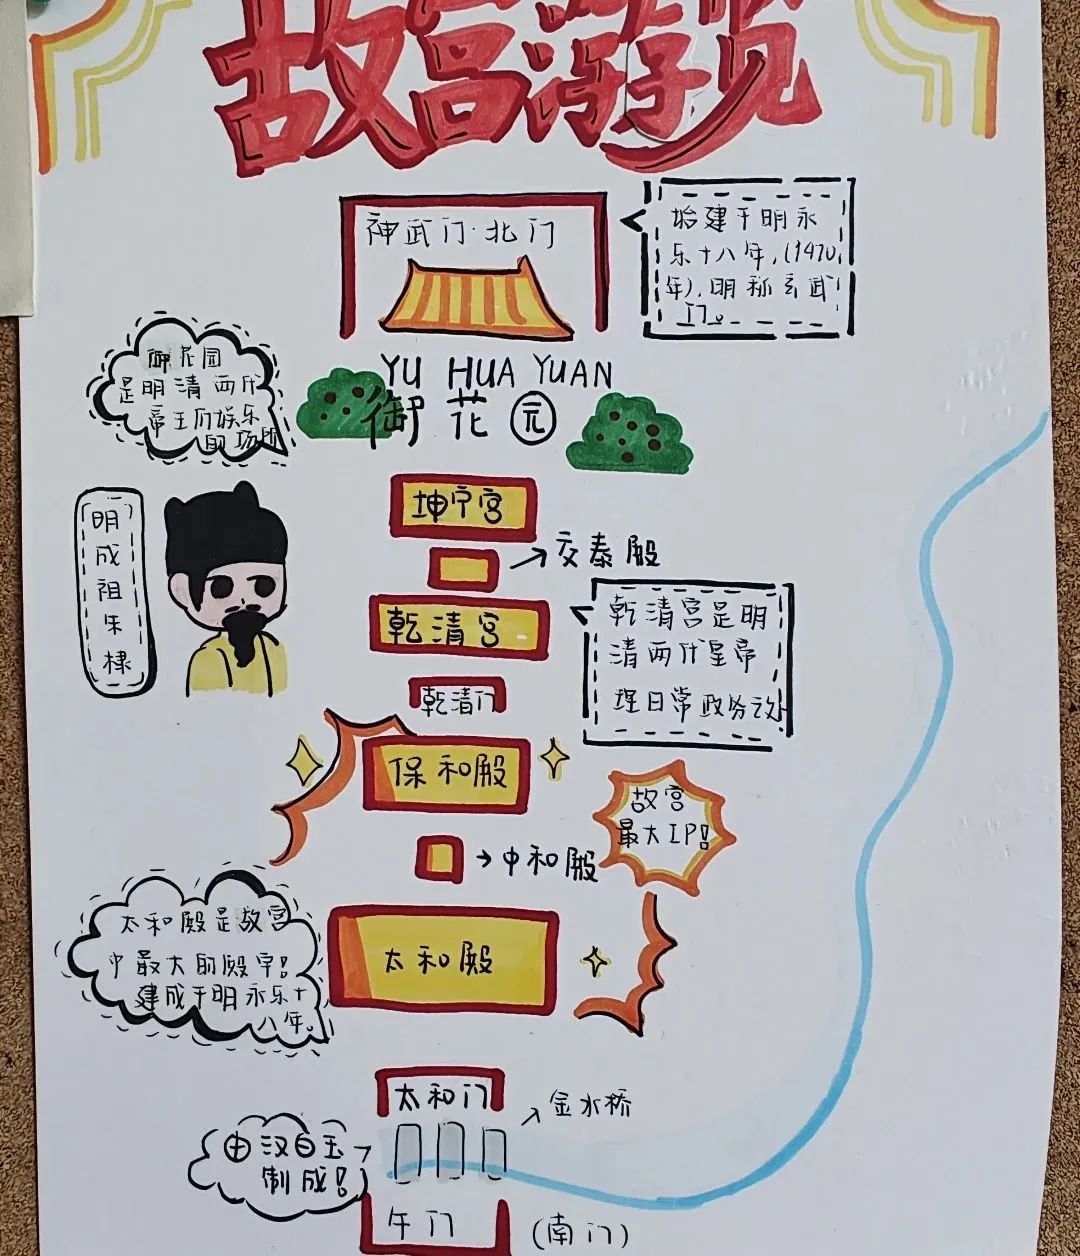 故宫游览
神武门·北门
始建于明永
乐十八年,(1420
年),明称玄武
门。
御花园
是明清两代
帝王们娱乐
的场所
YU HUA YUAN
御花园
坤宁宫
交泰殿
明成祖朱棣
乾清宫
乾清宫是明
清两代皇帝
理日常政务
乾清门
保和殿
故宫
最大IP!
中和殿
太和殿是故宫
中最大的殿宇!
建成于明永乐十
八年。
太和殿
太和门
金水桥
由汉白玉
制成!
午门 (南门)